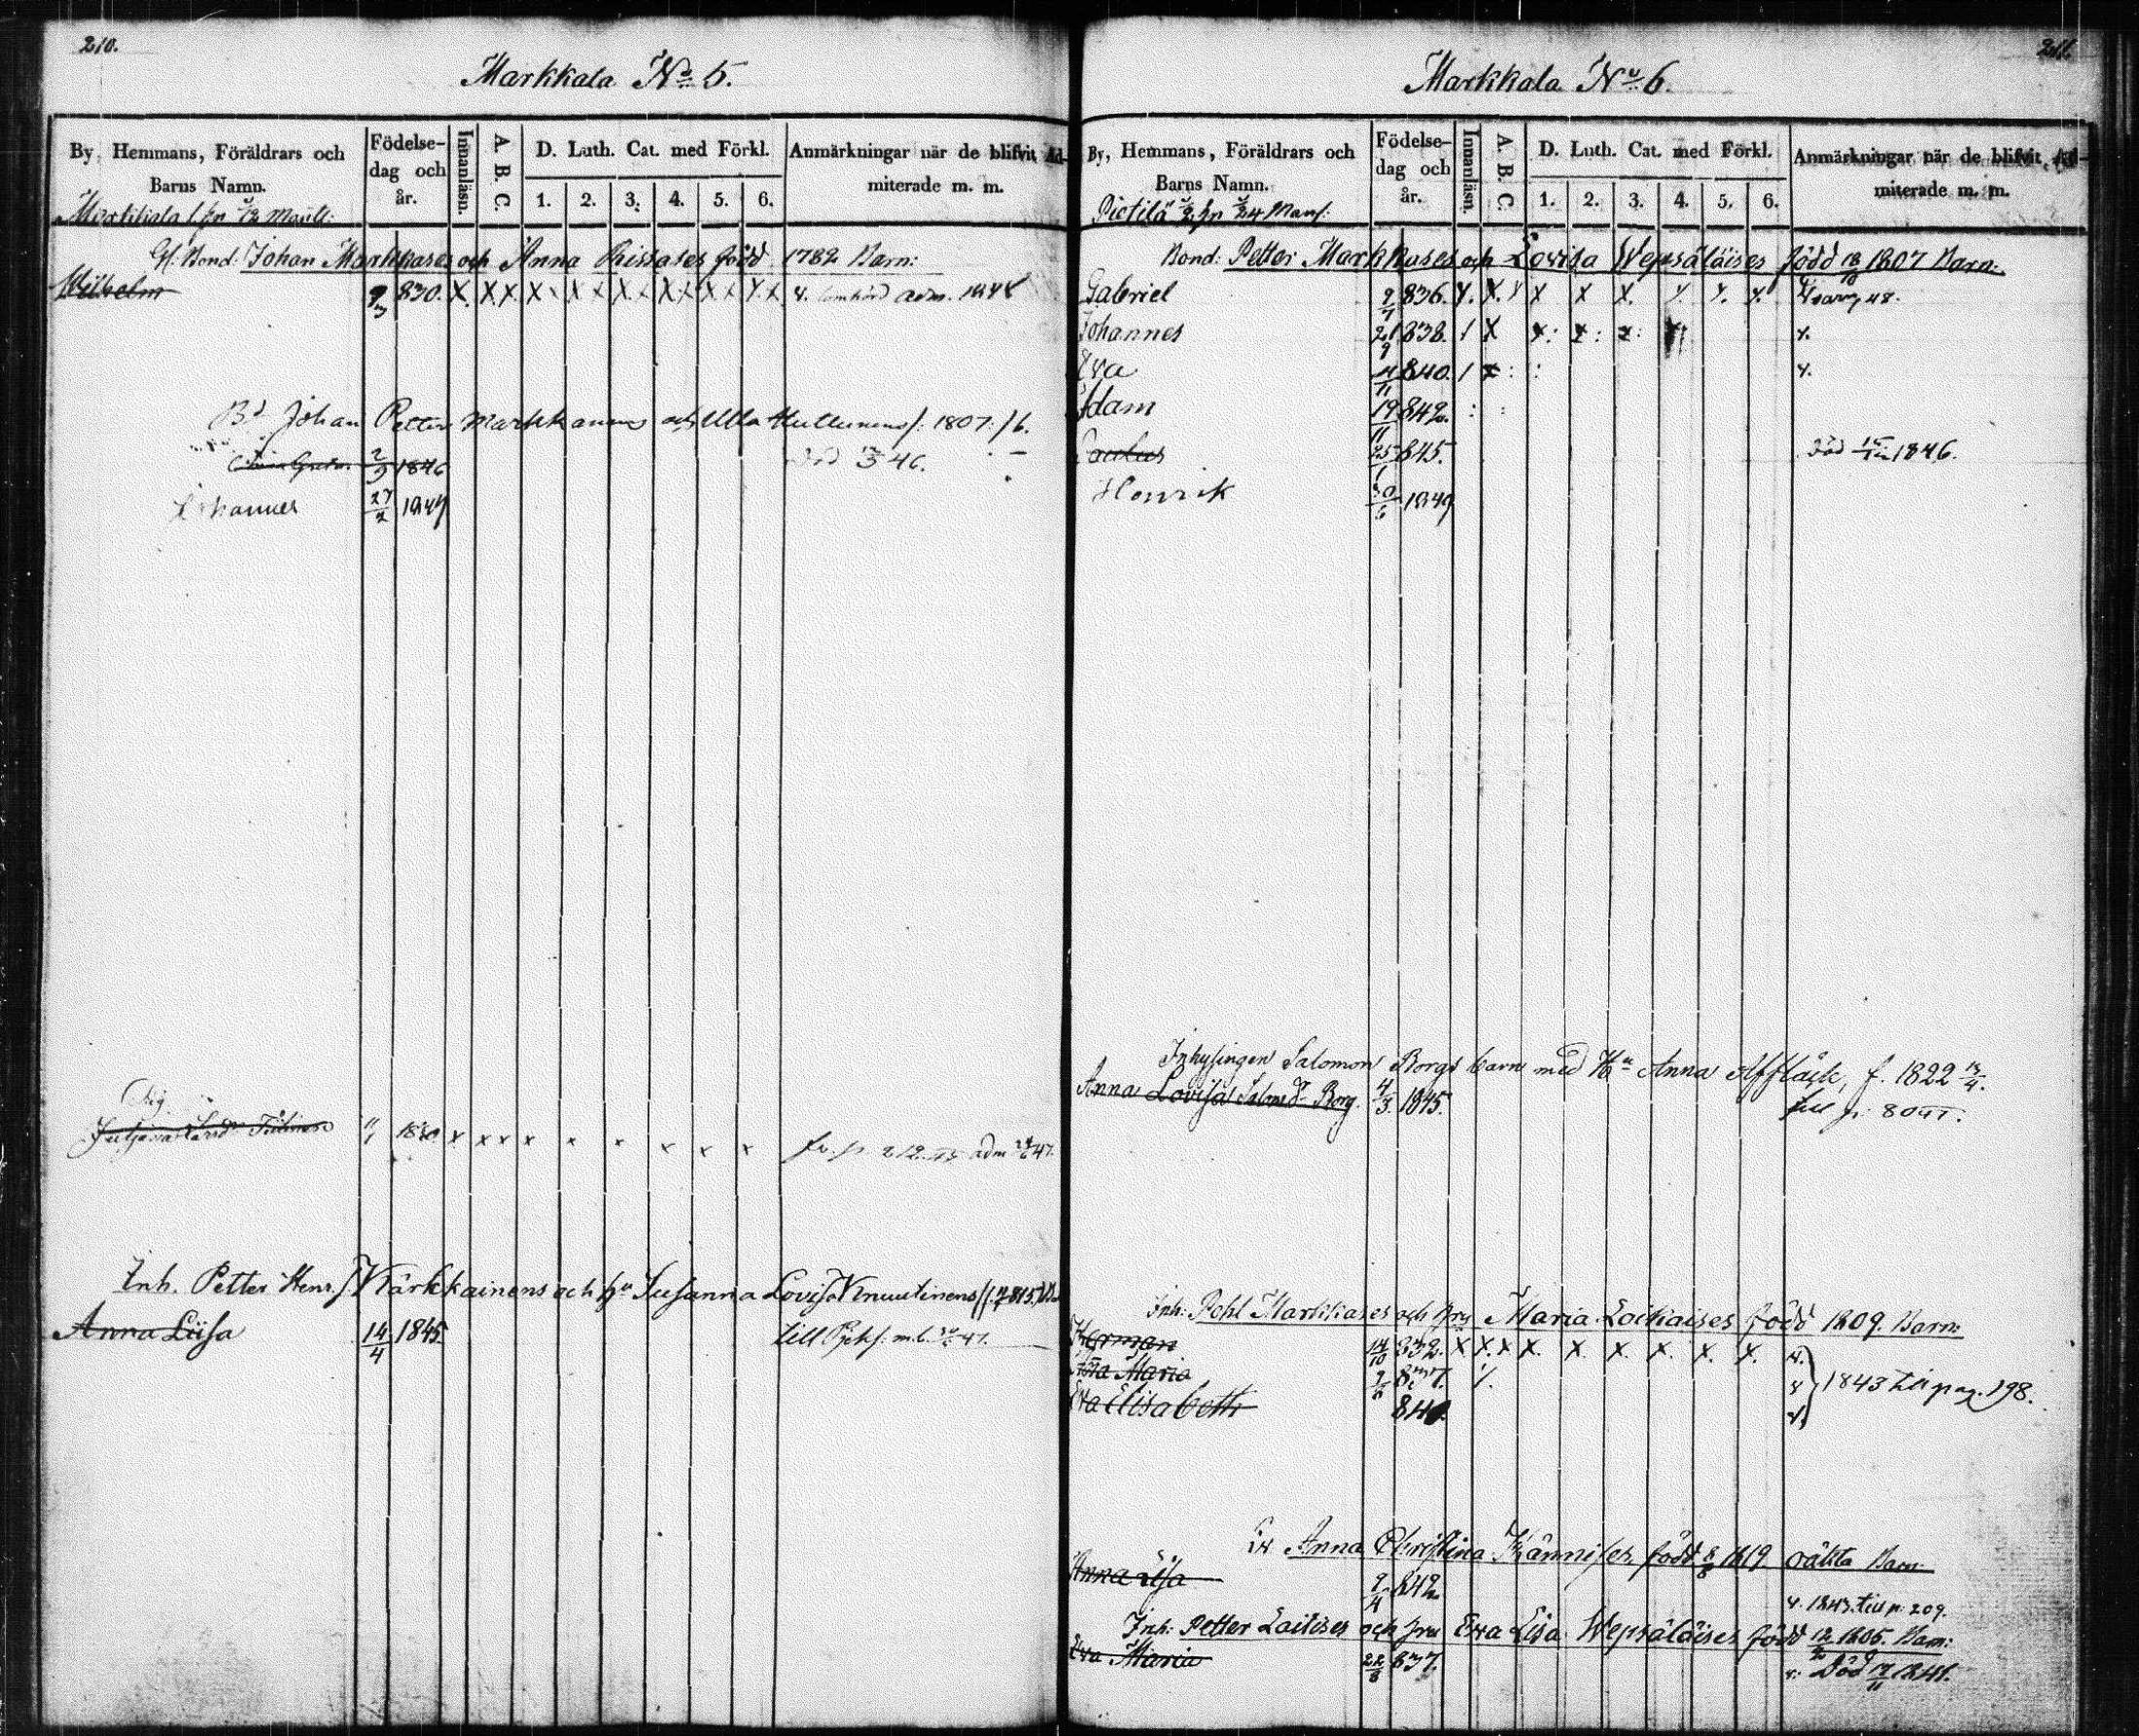 210.
Markkala No 5.
By, Hemmans, Föräldrars och Barns Namn.
Födelse-dag och år.
Innanläsn.
A. B. C.
D. Luth. Cat. med Förkl.
1. 2. 3. 4. 5. 6.
Anmärkningar när de blifvit Ad-miterade m. m.
Bond: Johan Markkases och Anna Rissases född 1782 Barn:
Wilhelm 9/3 830. X X X X X X X X X X X X X X X adm. 1848
Bd Johan Petter Markkanens och Ulla Huttunens f. 1807 :/ b.
Greta 2/3 1846 död 46.
Johannes 27/2 1847
Pig.
1830 x x x x x x x x x fr. p. 212. adm 47.
Inh. Petter Henr. Kärkkainens och hu Susanna Lovisa Knuutinens
Anna Liisa 14/4 1845 till m. b. 47.
211.
Markkala No 6.
By, Hemmans, Föräldrars och Barns Namn.
Födelse-dag och år.
Innanläsn.
A. B. C.
D. Luth. Cat. med Förkl.
1. 2. 3. 4. 5. 6.
Anmärkningar när de blifvit Ad-miterade m. m.
Pietilä
Bond: Petter Markkases och Lovisa Wepsäläises född 18/10 1807 Barn:
Gabriel 9/7 836. X. X. X X X X. X X. X. 48.
Johannes 21/9 838. / X X: X: X: X
Eva 14/11 840. / X : :
Adam 19/11 842. : :
Paulus 25/1 845. död 1846.
Henrik 30/6 1849
Inhysingen Salomon Borgs barn med Hu Anna Affläck, f. 1822 13/4.
Anna Lovisa Salomsdr Borg. 4/3 1845. till p. 8041.
Inh: Pohl Markkases och hru Maria Loikaises född 1809. Barn:
Herman 14/10 832. X X. X X. X. X. X. X. X.
Anna Maria 837. /.
Eva Elisabeth 840.
1843 till pag. 198.
Anna Christina Kännises född 8/8 1819 oäkta Barn:
Anna Lisa 9/4 842 1843 till p. 209.
Inh: Petter Laitises och hru Eva Lisa Wepsäläises född 1805. Barn:
Eva Maria 22/8 837. Död 17/11 1841.